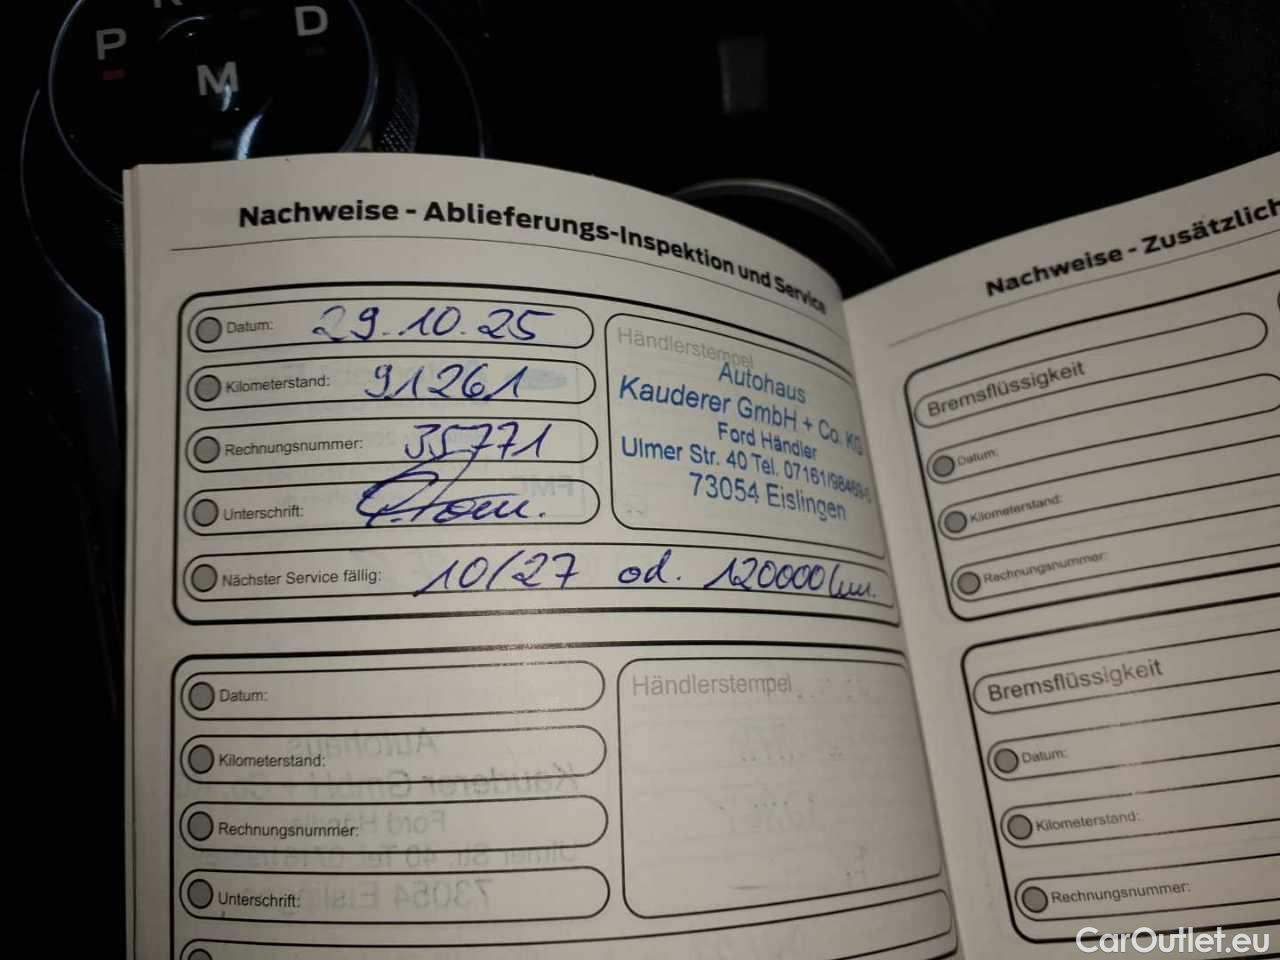 P
D
M
Nachweise - Ablieferungs-Inspektion und Service
Datum: 29.10.25
Kilometerstand: 91261
Rechnungsnummer: 35771
Unterschrift:
Nächster Service fällig: 10/27 od. 120000 km.
Händlerstempel
Autohaus
Kauderer GmbH + Co. KG
Ford Händler
Ulmer Str. 40 Tel. 07161/98469-0
73054 Eislingen
Datum:
Kilometerstand:
Rechnungsnummer:
Unterschrift:
Händlerstempel
Nachweise - Zusätzlich
Bremsflüssigkeit
Datum:
Kilometerstand:
Rechnungsnummer:
Bremsflüssigkeit
Datum:
Kilometerstand:
Rechnungsnummer:
CarOutlet.eu